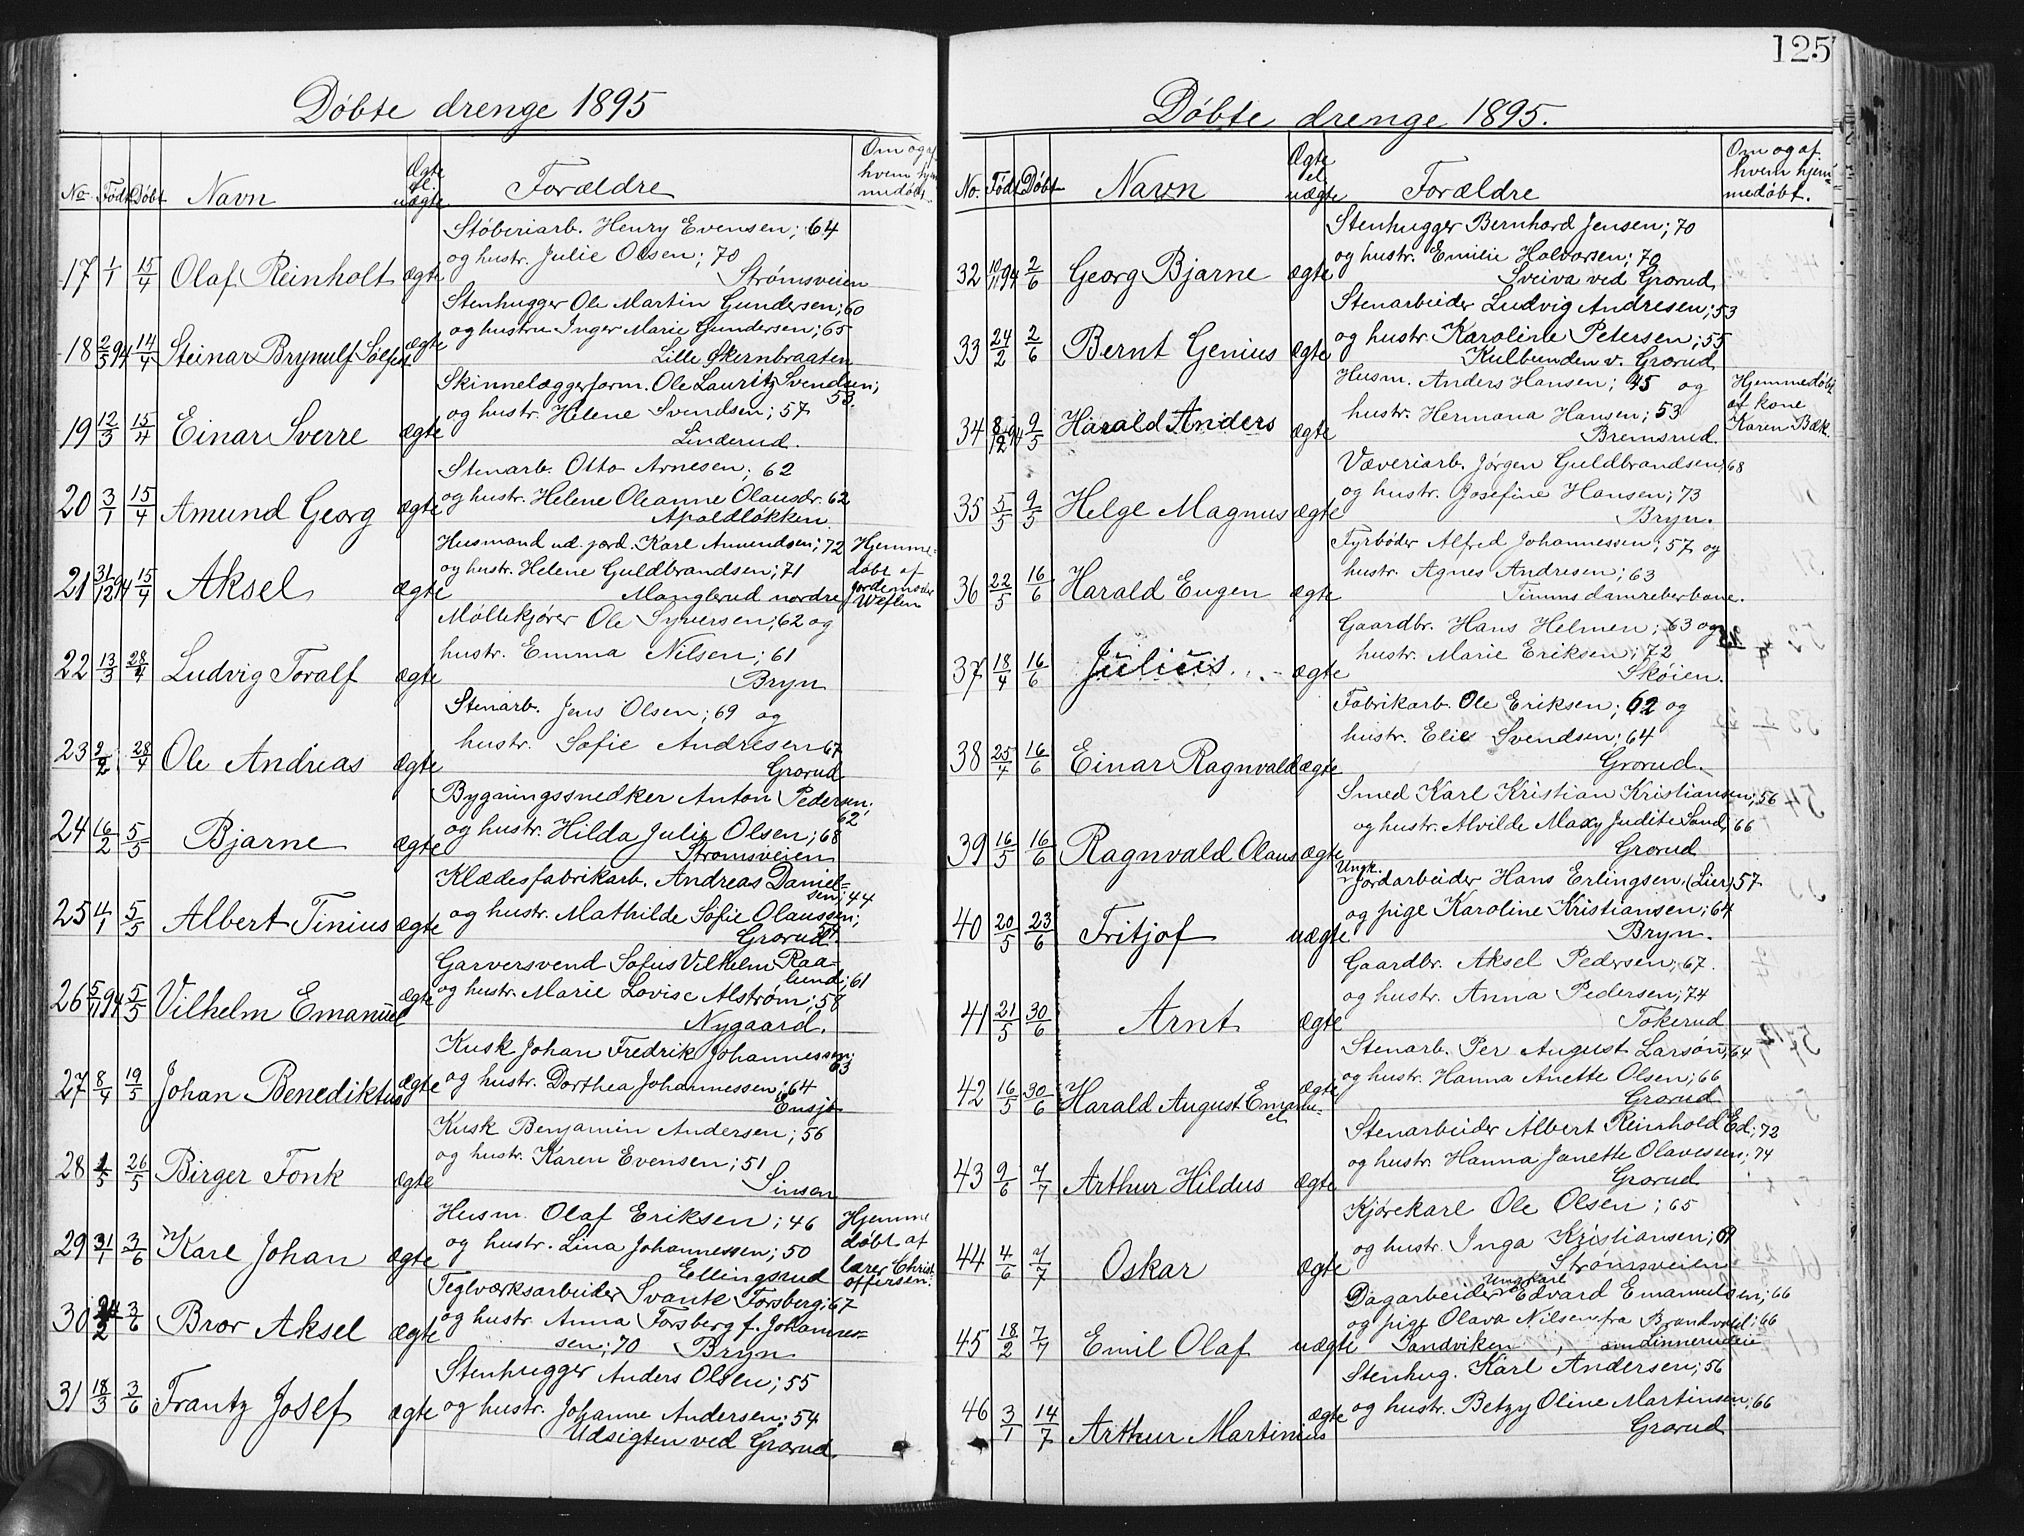 125
Døbte drenge 1895
No. Født Døbt Navn Ægte el. uægte Forældre Om og af hvem hjemmedøbt.
17 1/1 15/4 Olaf Reinholt ægte Støberiarb. Henry Evensen; 64
og hustr. Julie Olsen; 70
Strømsveien
18 2/5 94 14/4 Steinar Brynulf ægte Stenhugger Ole Martin Gundersen; 60
og hustru Inger Marie Gundersen; 65
Lille Sternbraaten
19 12/3 15/4 Einar Sverre ægte Skinnelæggerform. Ole Lauritz Svendsen; 53.
og hustr. Helene Svendsen; 57
Linderud.
20 3/1 15/4 Amund Georg ægte Stenarb. Otto Arnesen; 62
og hustr. Helene Oleanne Olausdr. 62
Apaldløkken
21 31/12 94 15/4 Aksel ægte Husmand ud. jord. Karl Amundsen; 72
og hustr. Helene Guldbrandsen; 71
Manglerud nordre
Hjemme-
døbt af
jordemoder
Weflen
22 13/3 28/4 Ludvig Toralf ægte Møllekjører Ole Syversen; 62 og
hustr. Emma Nilsen; 61
Bryn
23 2/2 28/4 Ole Andreas ægte Stenarb. Jens Olsen; 69 og
hustr. Sofie Andresen 67
Grorud
24 16/2 5/5 Bjarne ægte Bygningssnedker Anton Pedersen; 62
og hustr. Hilda Julie Olsen; 68
Strømsveien
25 4/1 5/5 Albert Tinius ægte Klædesfabrikarb. Andreas Daniel-
sen; 44
og hustr. Mathilde Sofie Olaussen;
Grorud
26 5/11 94 5/5 Vilhelm Emanuel ægte Garversvend Sofus Vilhelm Raa-
lund; 61
og hustr. Marie Lovise Alstrøm; 58
Nygaard.
27 8/4 19/5 Johan Benediktus ægte Kusk Johan Fredrik Johannessen; 63
og hustr. Dorthea Johannessen; 64
Ensjø
28 1/5 26/5 Birger Fonk ægte Kusk Benjamin Andersen; 56
og hustr. Karen Evensen; 51
Sinsen
29 31/1 3/6 Karl Johan ægte Husm. Olaf Eriksen; 46
og hustr. Lina Johannessen; 50
Ellingsrud
Hjemme
døbt af
lærer Christ
offersen.
30 3/6 Bror Aksel ægte Teglværksarbeider Svante Forsberg; 67
og hustr. Anna Forsberg f. Johannes-
sen; 70 Bryn
31 18/3 3/6 Frantz Josef ægte Stenhugger Anders Olsen; 55
og hustr. Johanne Andersen; 54
Udsigten ved Grorud.
Døbte drenge 1895.
No. Født Døbt Navn Ægte el uægte Forældre Om og af hvem hjem-
medøbt.
32 10/11 94 2/6 Georg Bjarne ægte Stenhugger Bernhard Jensen; 70
og hustr. Emilie Halvorsen; 70
Sveiva ved Grorud
33 24/2 2/6 Bernt Genius ægte Stenarbeider Ludvig Andresen; 53
og hustr. Karoline Petersen; 55
Kulbunden v. Grorud
34 8/12 94 9/5 Harald Anders ægte Husm. Anders Hansen; 45 og
hustr. Hermana Hansen; 53
Bremsrud.
Hjemmedøbt
af kone
Karen Bæk.
35 5/5 9/5 Helge Magnus ægte Væveriarb. Jørgen Guldbrandsen; 68
og hustr. Josefine Hansen; 73
Bryn.
36 22/5 16/6 Harald Eugen ægte Fyrbøder Alfred Johannessen; 57 og
hustr. Agnes Andresen; 63
37 18/4 16/6 Julius ægte Gaardbr. Hans Helmen; 63 og
hustr. Marie Eriksen; 72
Skøien.
38 25/4 16/6 Einar Ragnvald ægte Fabrikarb. Ole Eriksen; 62 og
hustr. Elie Svendsen; 64
Grorud.
39 16/5 16/6 Ragnvald Olaus ægte Smed Karl Kristian Kristiansen; 56
og hustr. Alvilde Maxy Judite Sand; 66
Grorud
40 20/5 23/6 Fritjof uægte Ungk.
Jordarbeider Hans Erlingsen, (Lier) 57
og pige Karoline Kristiansen; 64
Bryn.
41 21/5 30/6 Arnt ægte Gaardbr. Aksel Pedersen; 67.
og hustr. Anna Pedersen; 74
Tokerud
42 16/5 30/6 Harald August Emanu-
el ægte Stenarb. Per August Larsøn; 64
og hustr. Hanna Anette Olsen; 66
Grorud
43 9/6 7/7 Arthur Hildus ægte Stenarbeider Albert Reinhold Ed; 72
og hustr. Hanna Janette Olavesen; 74
Grorud
44 4/6 7/7 Oskar ægte Kjørekarl Ole Olsen; 65
og hustr. Inga Kristiansen;
Strømsveien
45 18/2 7/7 Emil Olaf uægte Dagarbeider ungkarl Edvard Emanuelsen; 66
og pige Olava Nilsen fra Brandvold; 66
Sandviken,
46 3/1 14/7 Arthur Martinius ægte Stenhug. Karl Andersen; 56
og hustr. Betzy Oline Martinsen; 66
Grorud